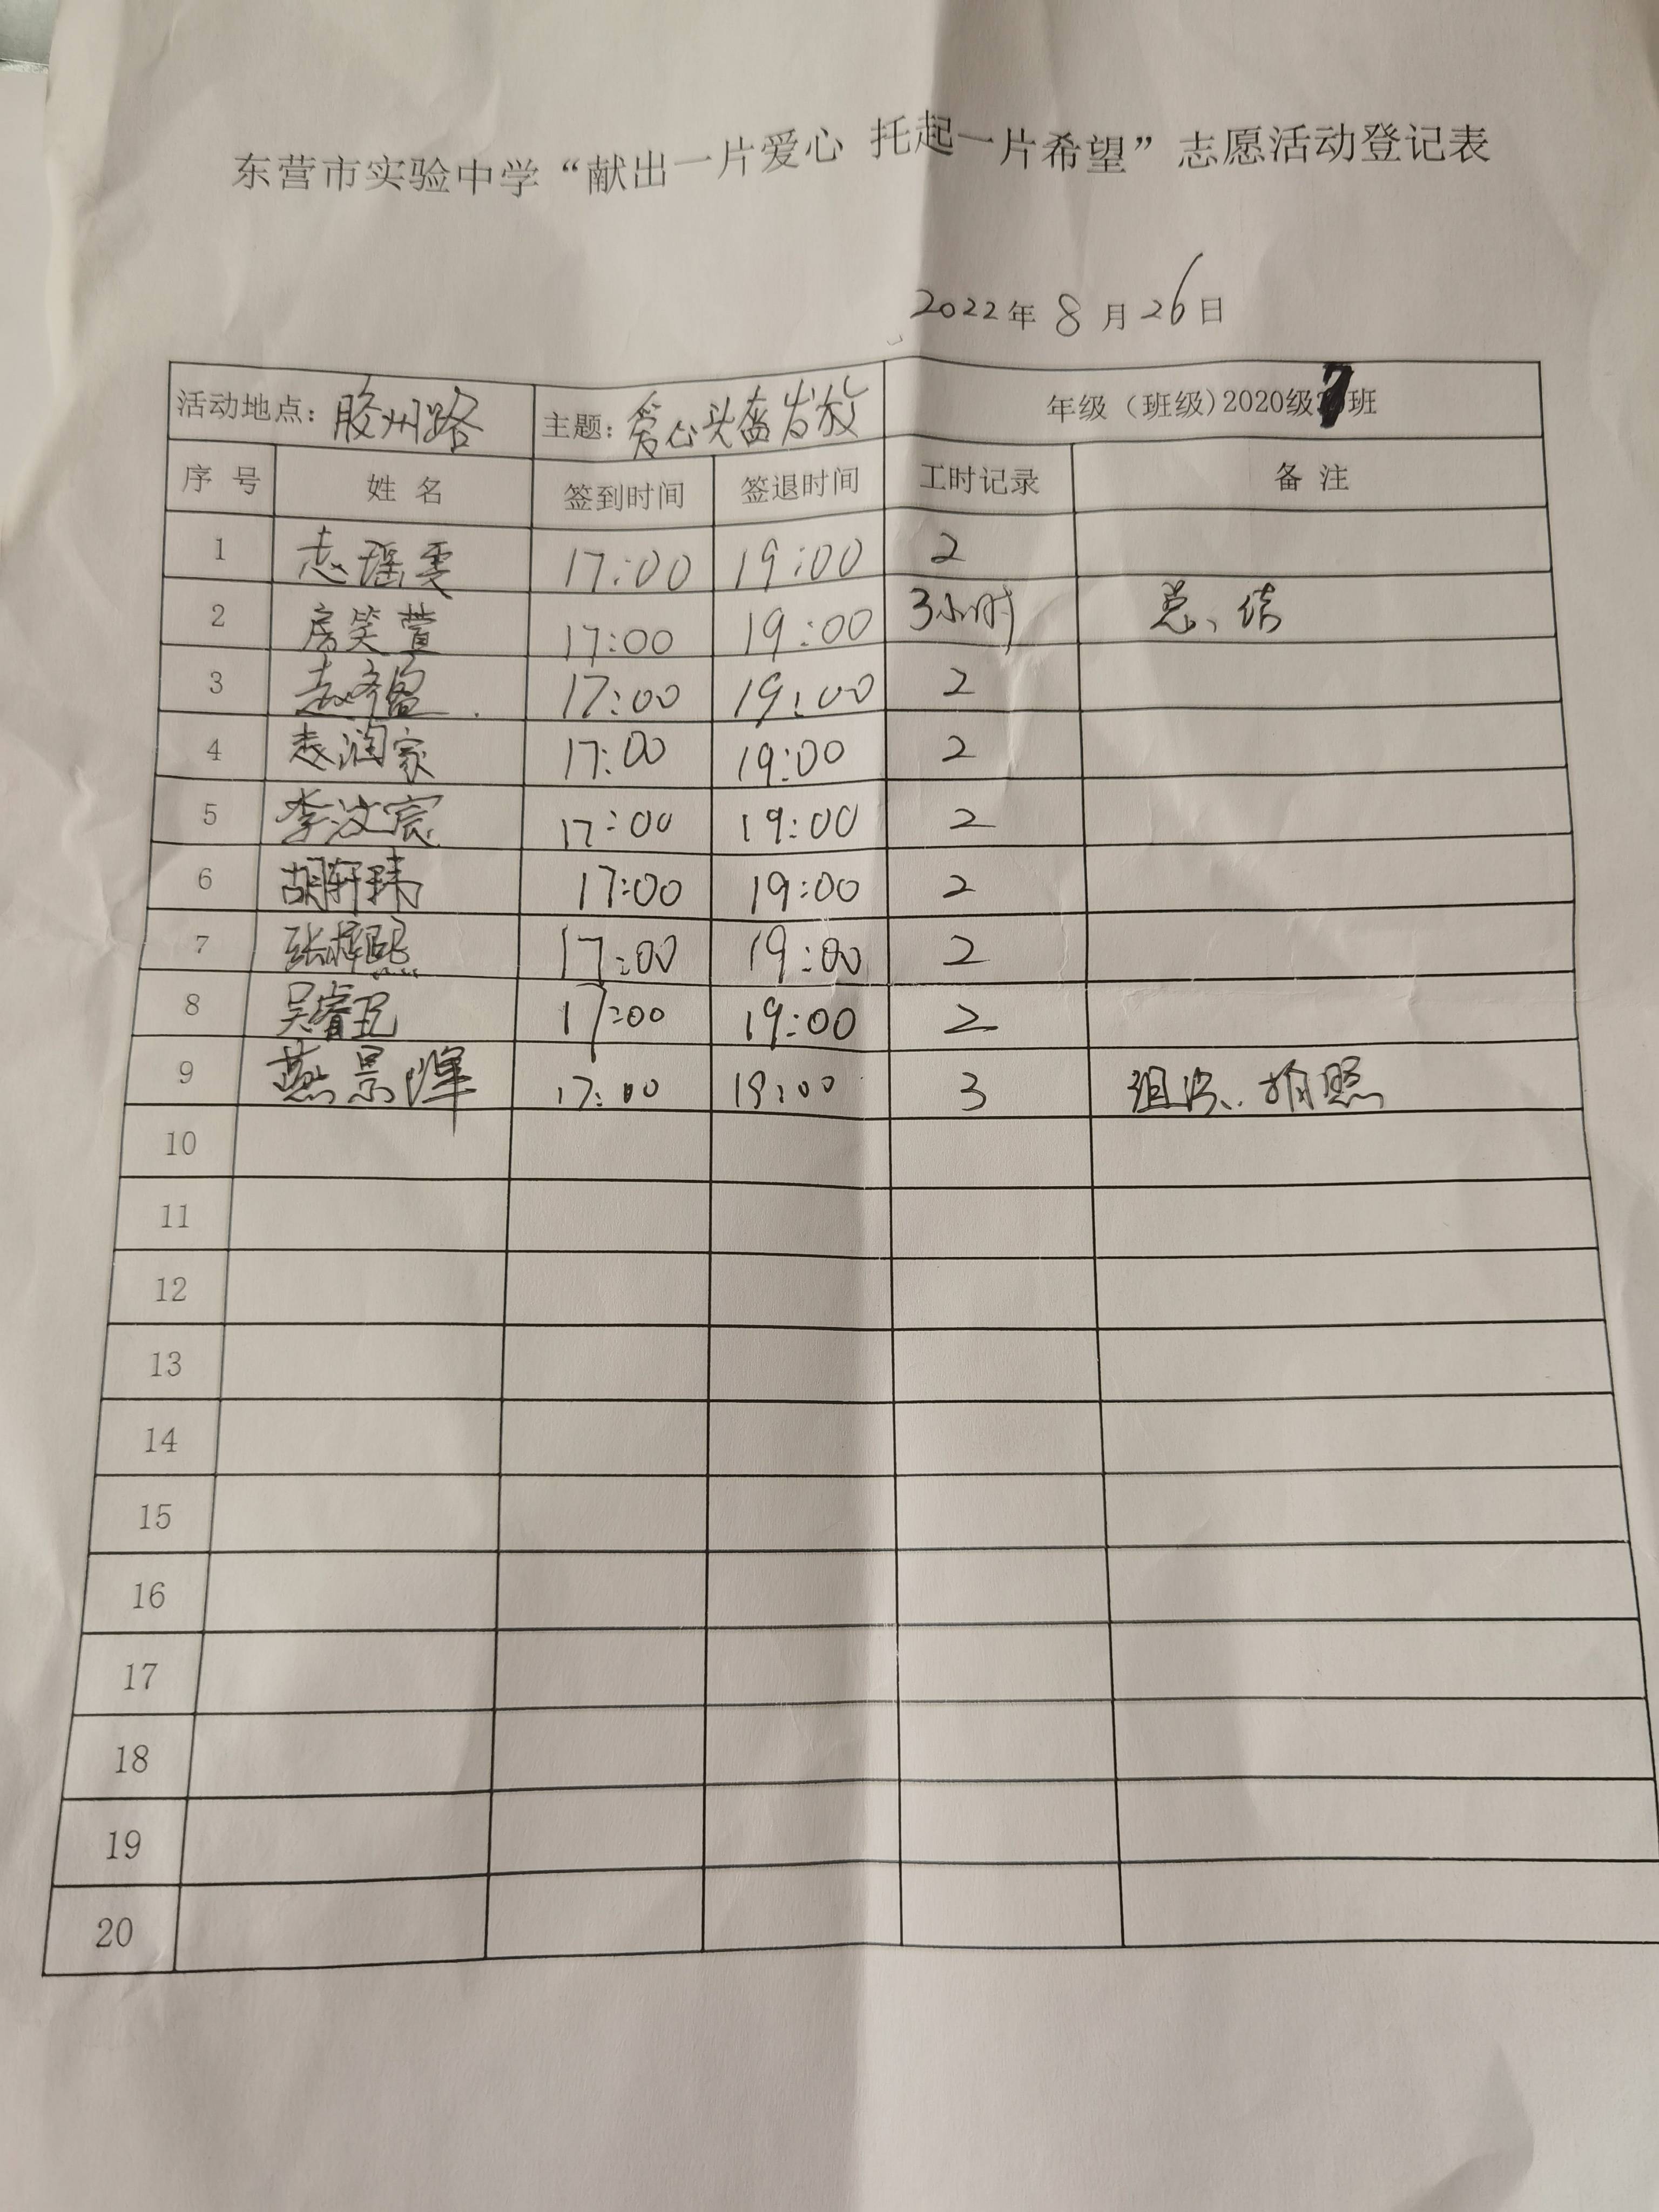 东营市实验中学“献出一片爱心 托起一片希望”志愿活动登记表
2022年 8 月 26日
活动地点：胶州路 主题：爱心头盔发放 年级（班级）2020级7班
序 号 姓 名 签到时间 签退时间 工时记录 备 注
1 赵瑶雯 17:00 19:00 2
2 房笑萱 17:00 19:00 3小时 总、结
3 17:00 19:00 2
4 赵润家 17:00 19:00 2
5 李汶宸 17:00 19:00 2
6 胡轩玮 17:00 19:00 2
7 张梓熙 17:00 19:00 2
8 吴睿 17:00 19:00 2
9 燕景峰 17:00 19:00 3 组织、拍照
10
11
12
13
14
15
16
17
18
19
20